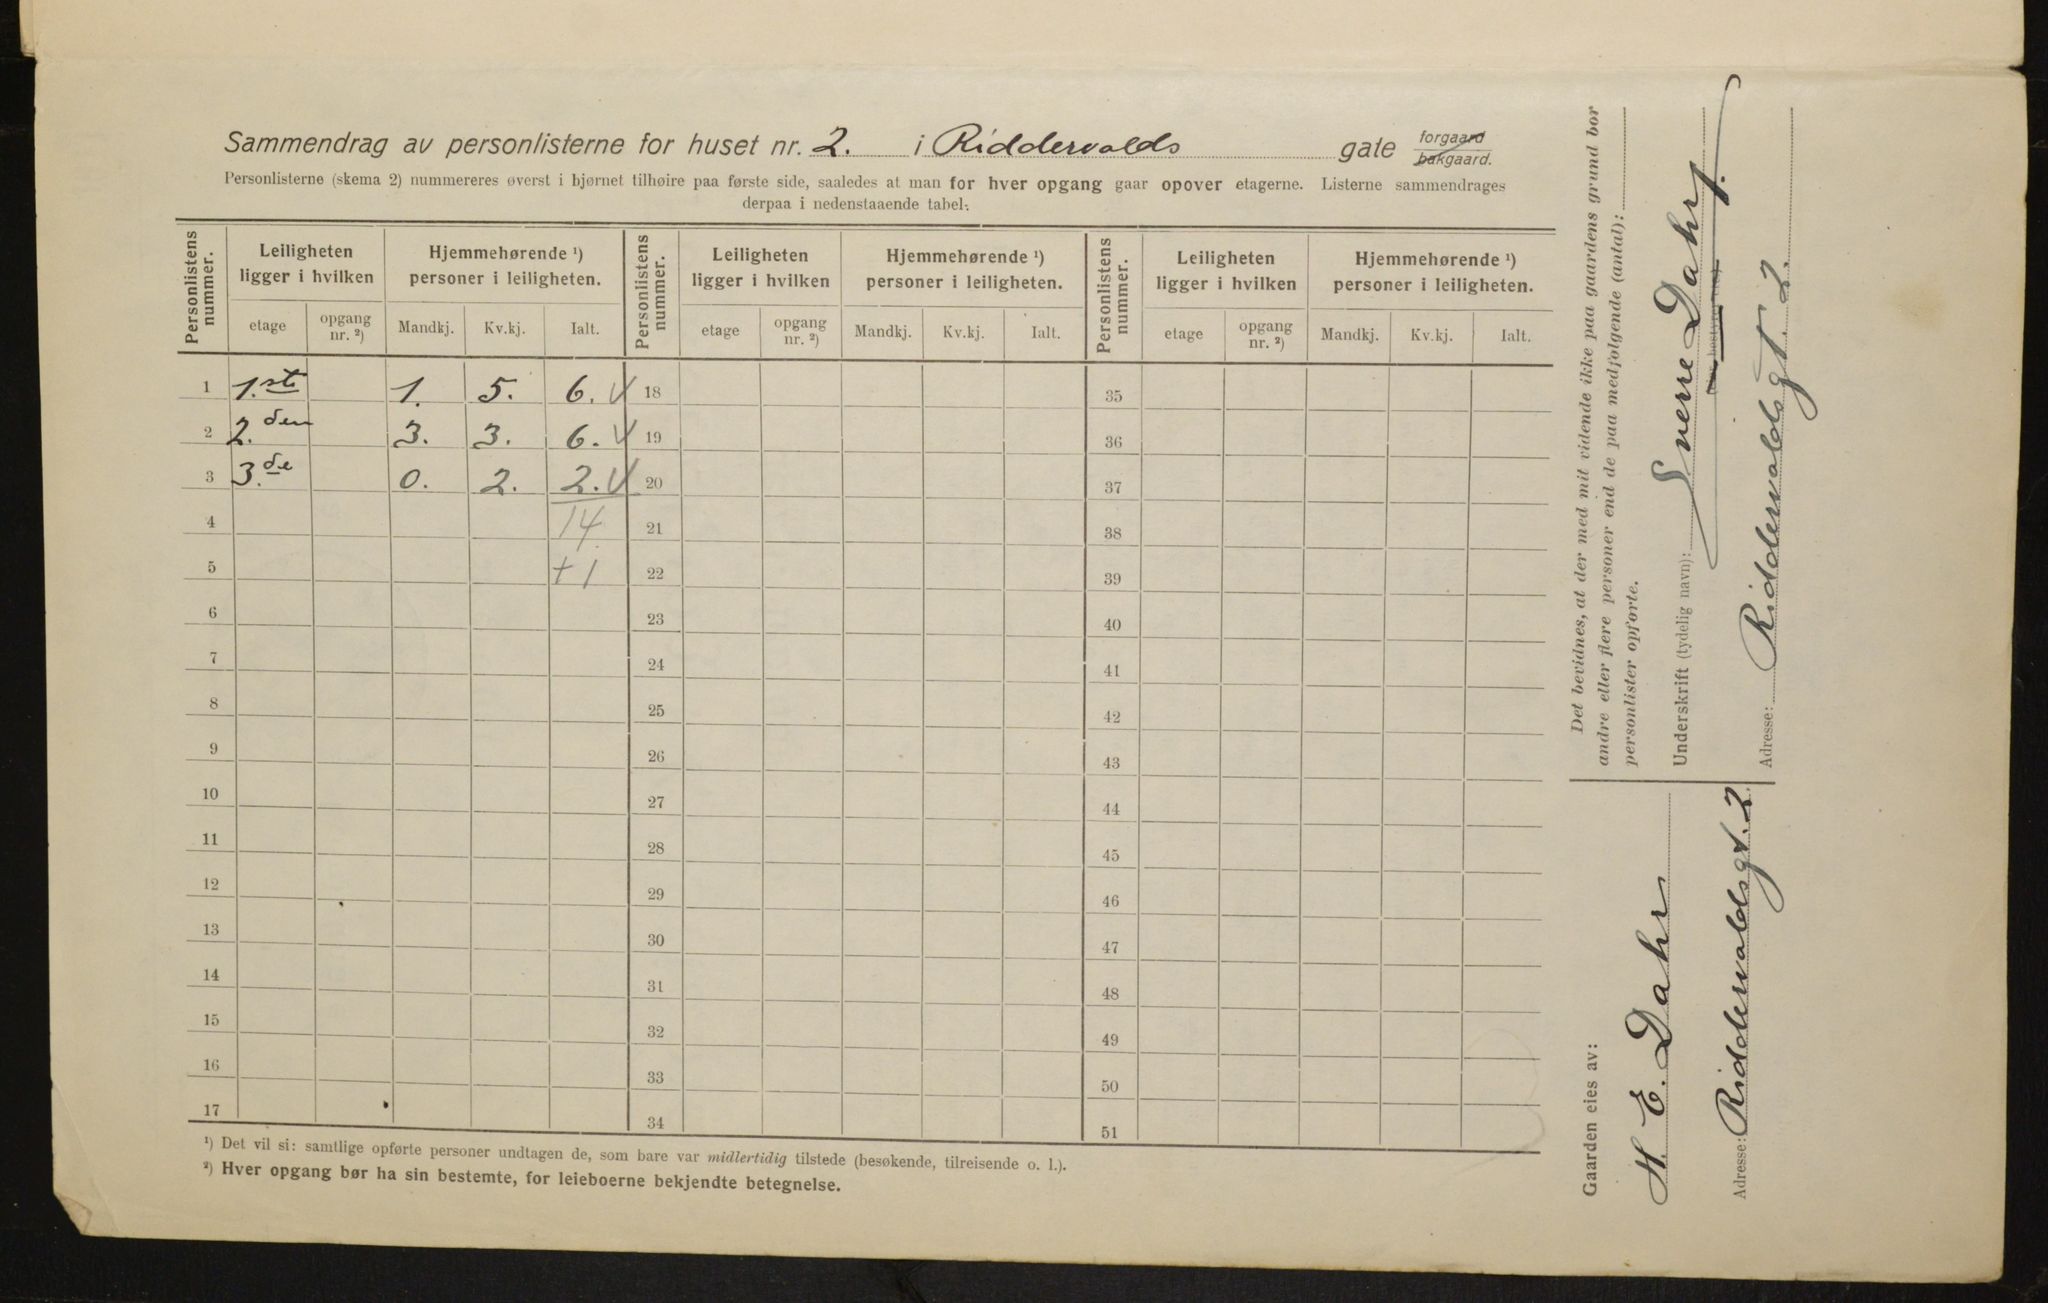 Sammendrag av personlisterne for huset nr. 2. i Riddervolds gate forgaard bakgaard.
Personlisterne (skema 2) nummereres øverst i hjørnet tilhøire paa første side, saaledes at man for hver opgang gaar opover etagerne. Listerne sammendrages
derpaa i nedenstaaende tabel:
Personlistens nummer. Leiligheten ligger i hvilken Hjemmehørende ¹) personer i leiligheten. Personlistens nummer. Leiligheten ligger i hvilken Hjemmehørende ¹) personer i leiligheten. Personlistens nummer. Leiligheten ligger i hvilken Hjemmehørende ¹) personer i leiligheten.
etage opgang nr. ²) Mandkj. Kv.kj. Ialt. etage opgang nr. ²) Mandkj. Kv.kj. Ialt. etage opgang nr. ²) Mandkj. Kv.kj. Ialt.
1 1.ste 1. 5. 6. V 18 35
2 2.den 3. 3. 6. V 19 36
3 3.de 0. 2. 2. V 20 37
4 14 21 38
5 +1 22 39
6 23 40
7 24 41
8 25 42
9 26 43
10 27 44
11 28 45
12 29 46
13 30 47
14 31 48
15 32 49
16 33 50
17 34 51
¹) Det vil si: samtlige opførte personer undtagen de, som bare var midlertidig tilstede (besøkende, tilreisende o. l.).
²) Hver opgang bør ha sin bestemte, for leieboerne bekjendte betegnelse.
Det bevidnes, at der med mit vidende ikke paa gaardens grund bor
andre eller flere personer end de paa medfølgende (antal):
personlister opførte.
Underskrift (tydelig navn): Sverre Dahr
Adresse: Riddervoldsgt. 2.
Gaarden eies av:
H. E. Dahr
Adresse: Riddervoldsgt. 2.